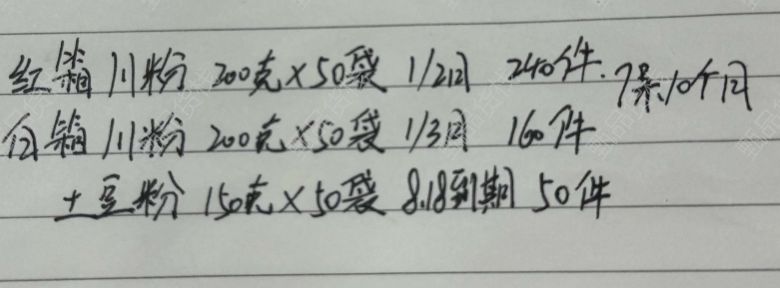 红箱川粉 200克×50袋 1/2月 240件. 保10个月
白箱川粉 200克×50袋 1/3月 160件
土豆粉 150克×50袋 8.18到期 50件